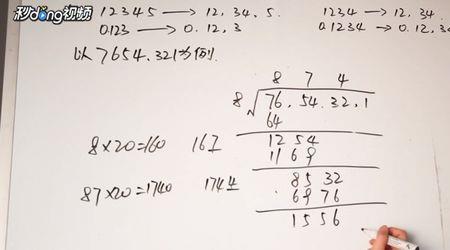 秒dong视频
12345 → 12,34,5. 1234 → 12,34.
0.123 → 0.12,3 0.1234 → 0.12,3
以7654.321为例.
8 7 4
8√76,54.32,1
64
8×20=160 167 1254
1169
87×20=1740 1744 8532
6976
1556